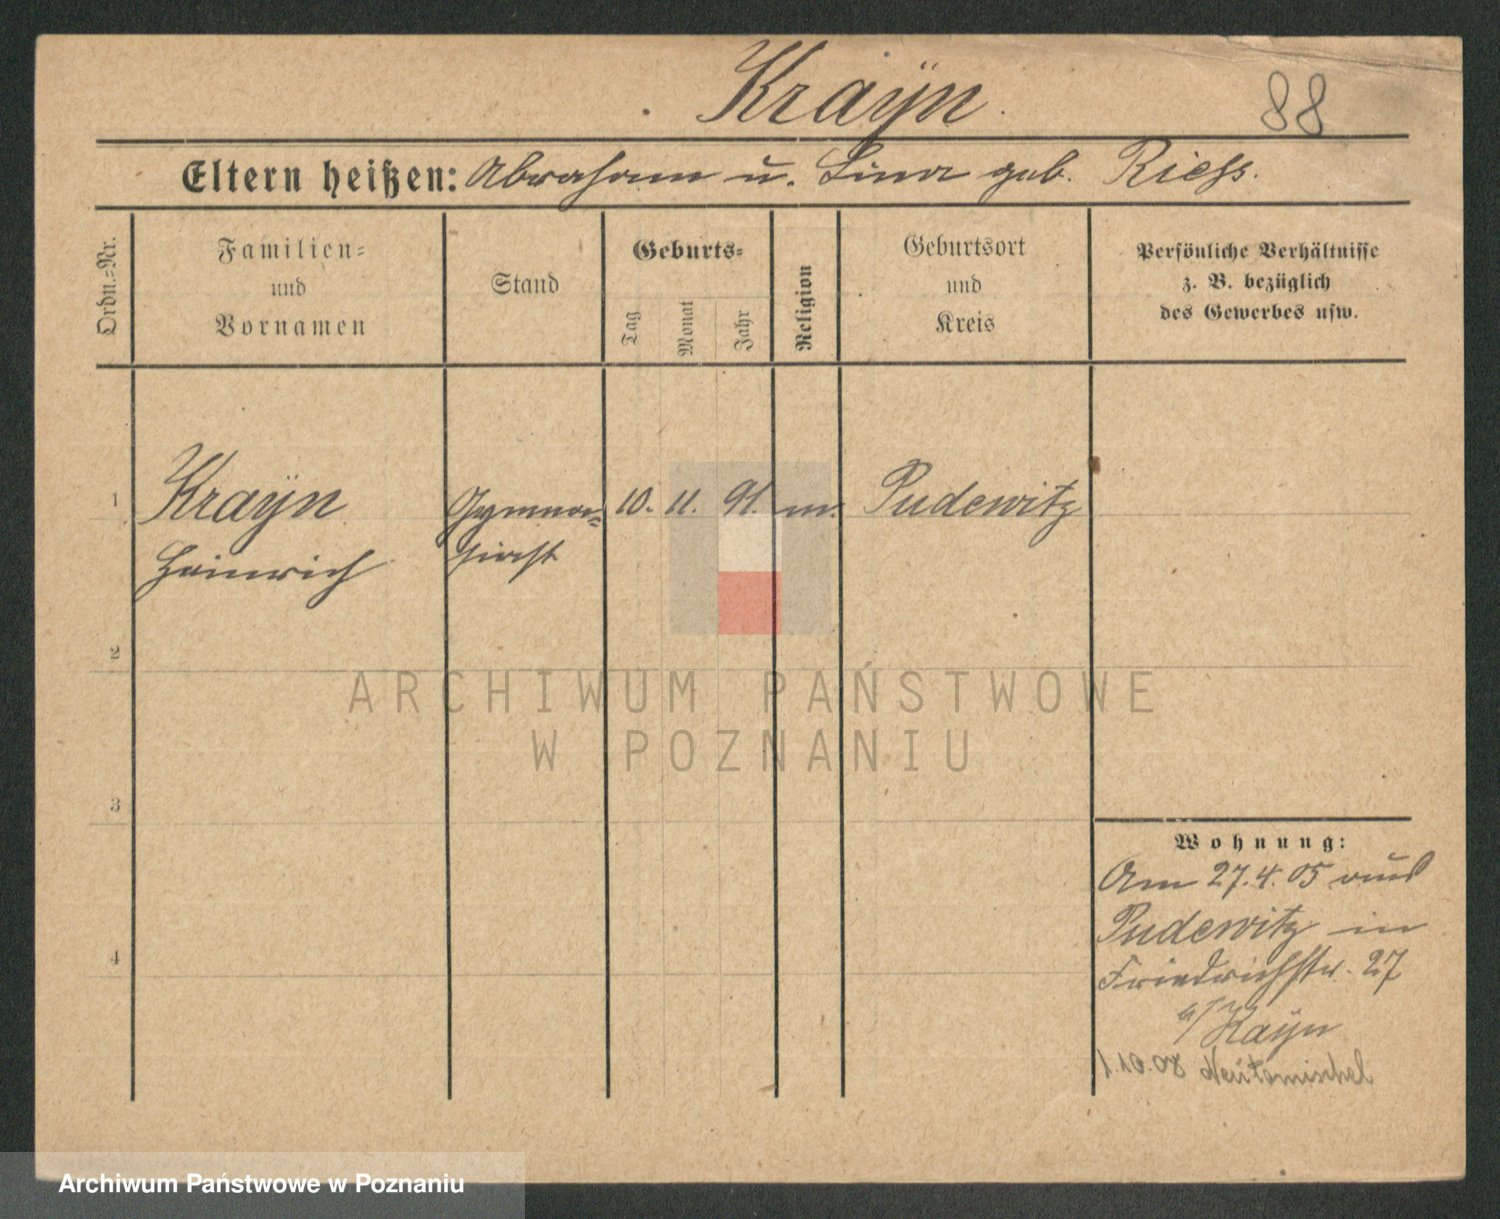 Krayn.
88
Eltern heißen: Abraham u. Lina geb. Riess.
Ordn.=Nr.
Familien=
und
Vornamen
Stand
Geburts=
Tag
Monat
Jahr
Religion
Geburtsort
und
Kreis
Persönliche Verhältnisse
z. B. bezüglich
des Gewerbes usw.
1
Kraÿn
Heinrich
Gymna=
siast
10.
11.
91.
m.
Pudewitz
2
ARCHIWUM PAŃSTWOWE
W POZNANIU
3
4
Wohnung:
Am 27.4.05 aus
Pudewitz in
Friedrichstr. 27
b/ Kaÿn
1.10.08 Neutomischel
Archiwum Państwowe w Poznaniu